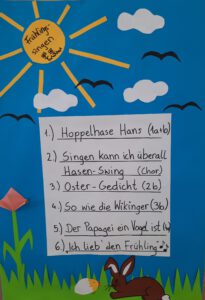 Frühling-
singen
1.) Hoppelhase Hans (1a+b)
2.) Singen kann ich überall
Hasen-Swing (Chor)
3.) Oster-Gedicht (2b)
4.) So wie die Wikinger (3b)
5.) Der Papagei ein Vogel ist
6.) „Ich lieb' den Frühling"